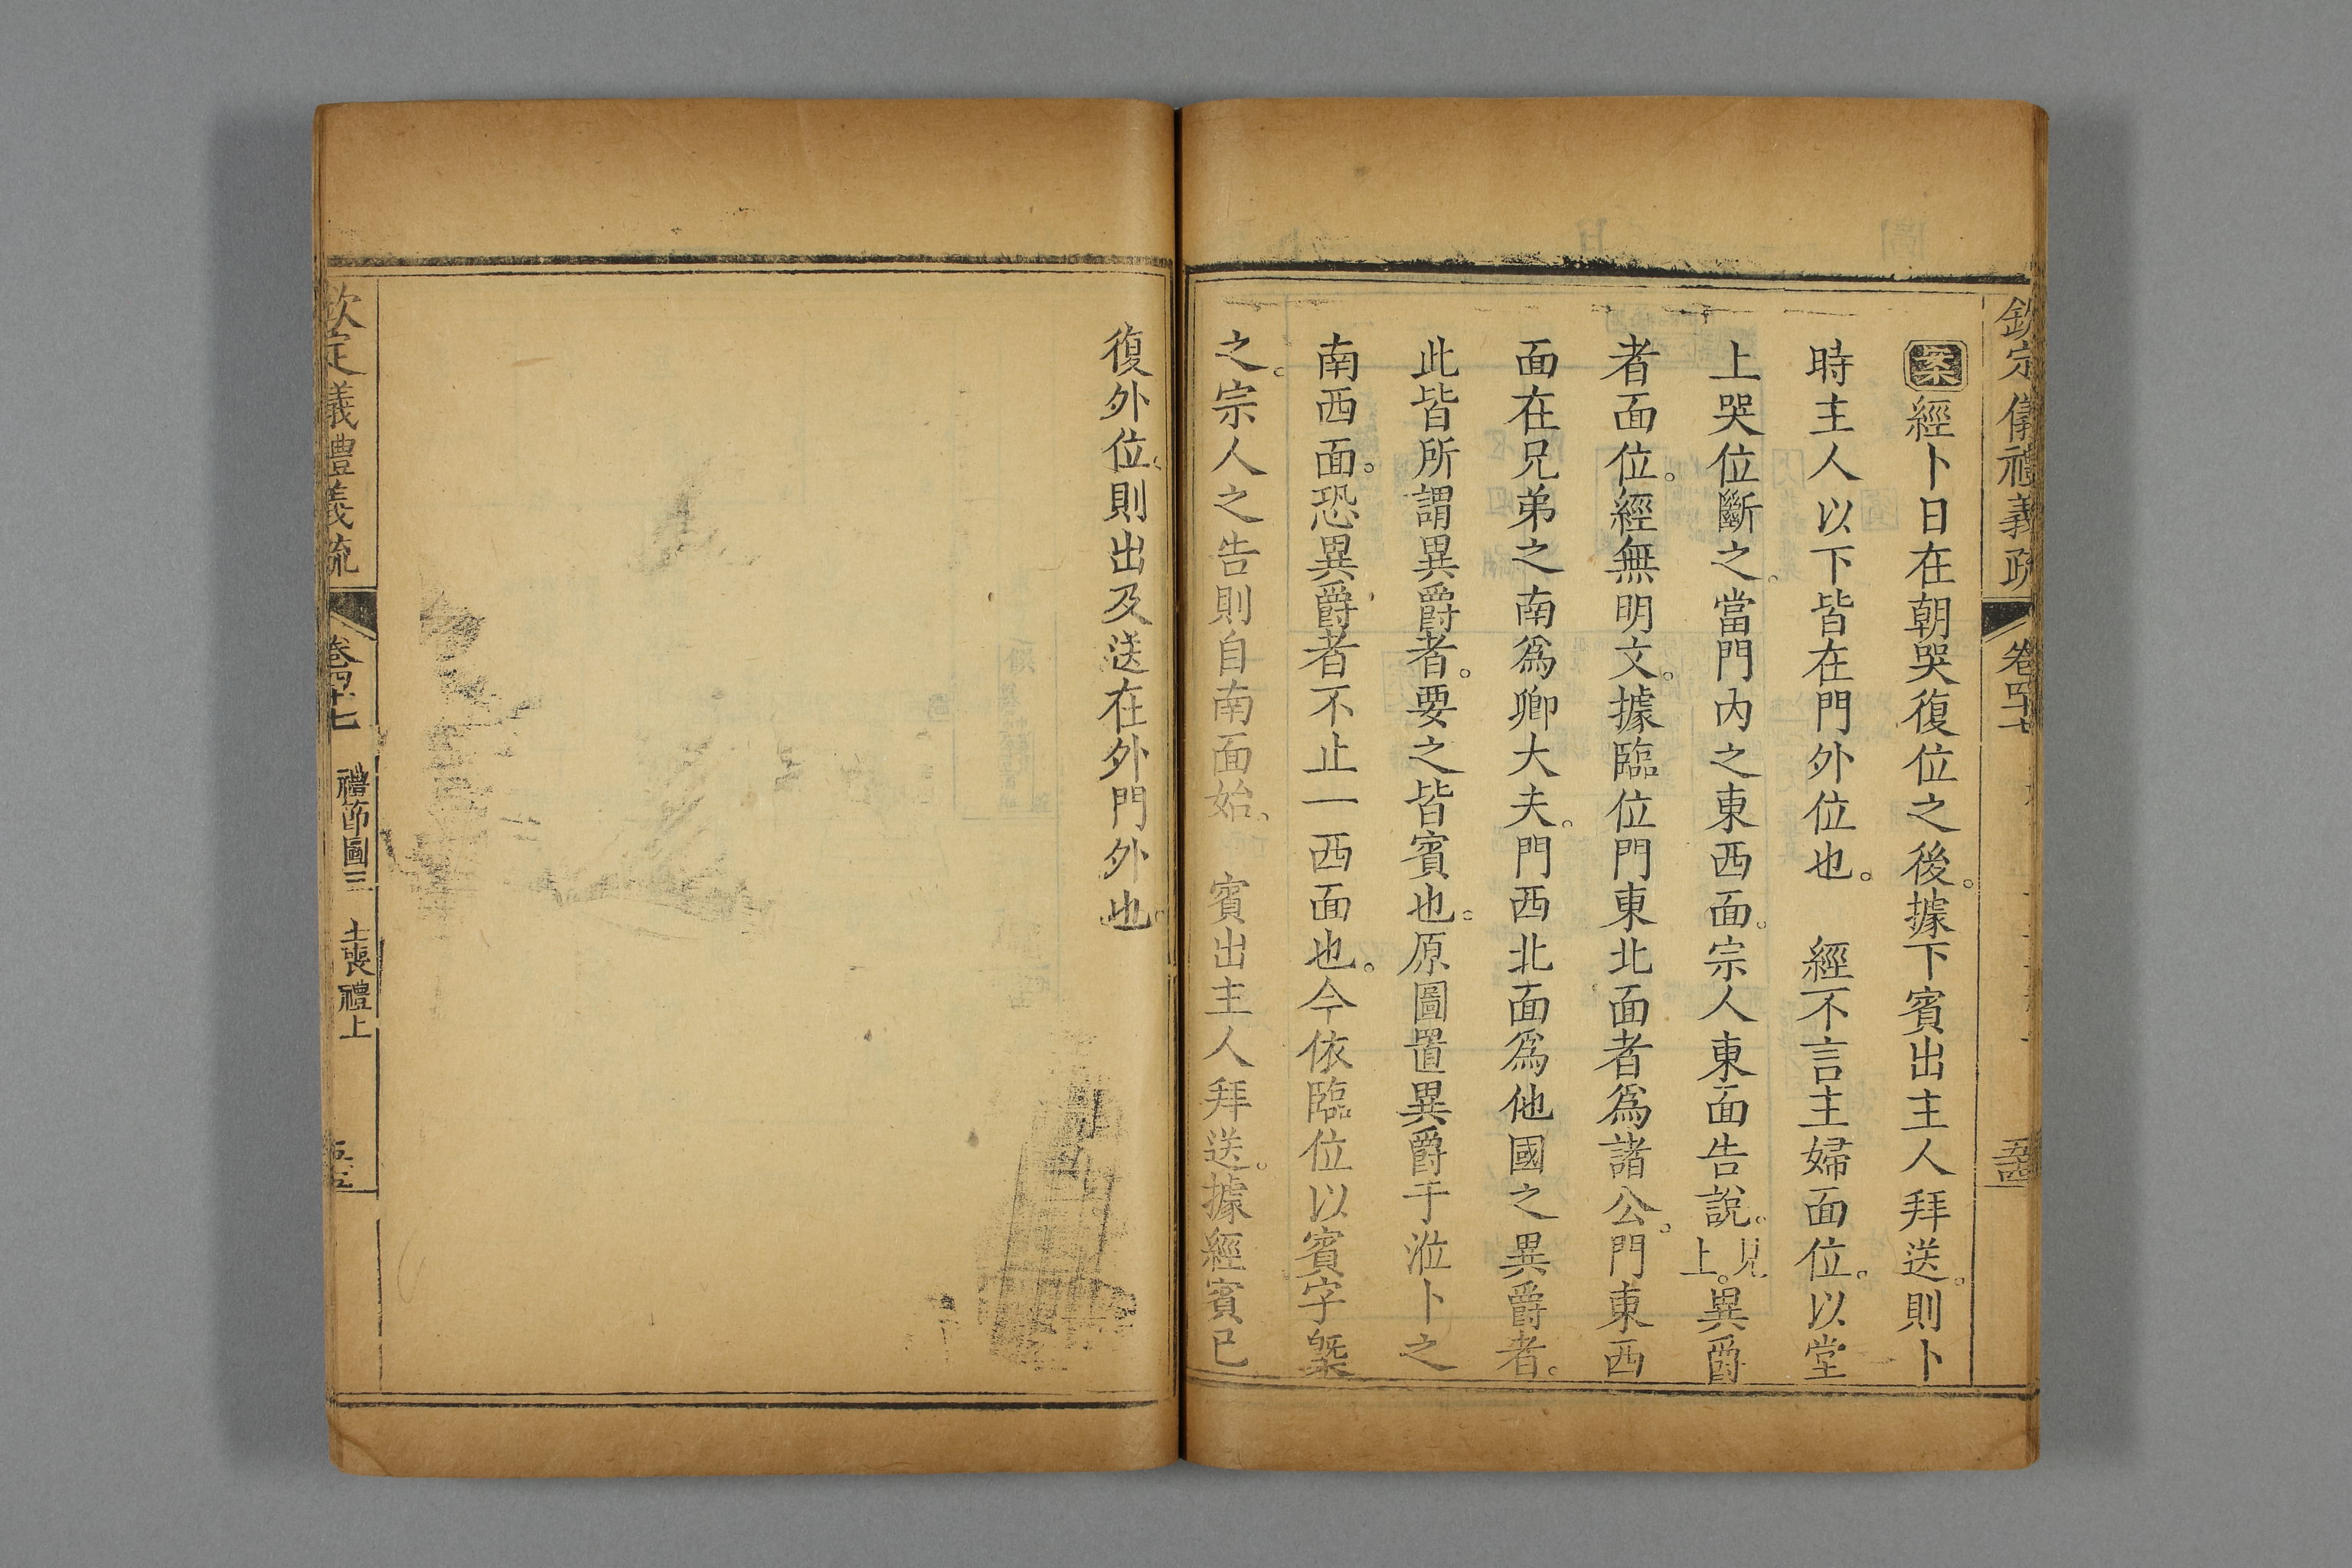 欽定儀禮義疏 卷四十七 五十四
案經卜日在朝哭復位之後。據下賓出主人拜送。則卜
時主人以下皆在門外位也。 經不言主婦面位。以堂
上哭位斷之。當門內之東西面。宗人東面告說。見上。異爵
者面位。經無明文。據臨位門東北面者爲諸公。門東西
面在兄弟之南爲卿大夫。門西北面爲他國之異爵者。
此皆所謂異爵者。要之皆賓也。原圖置異爵于涖卜之
南西面。恐異爵者不止一西面也。今依臨位以賓字槩
之。宗人之告則自南面始。 賓出主人拜送。據經賓已
復外位。則出及送在外門外也。
欽定義禮義疏 卷四十七 禮節圖三 士喪禮上